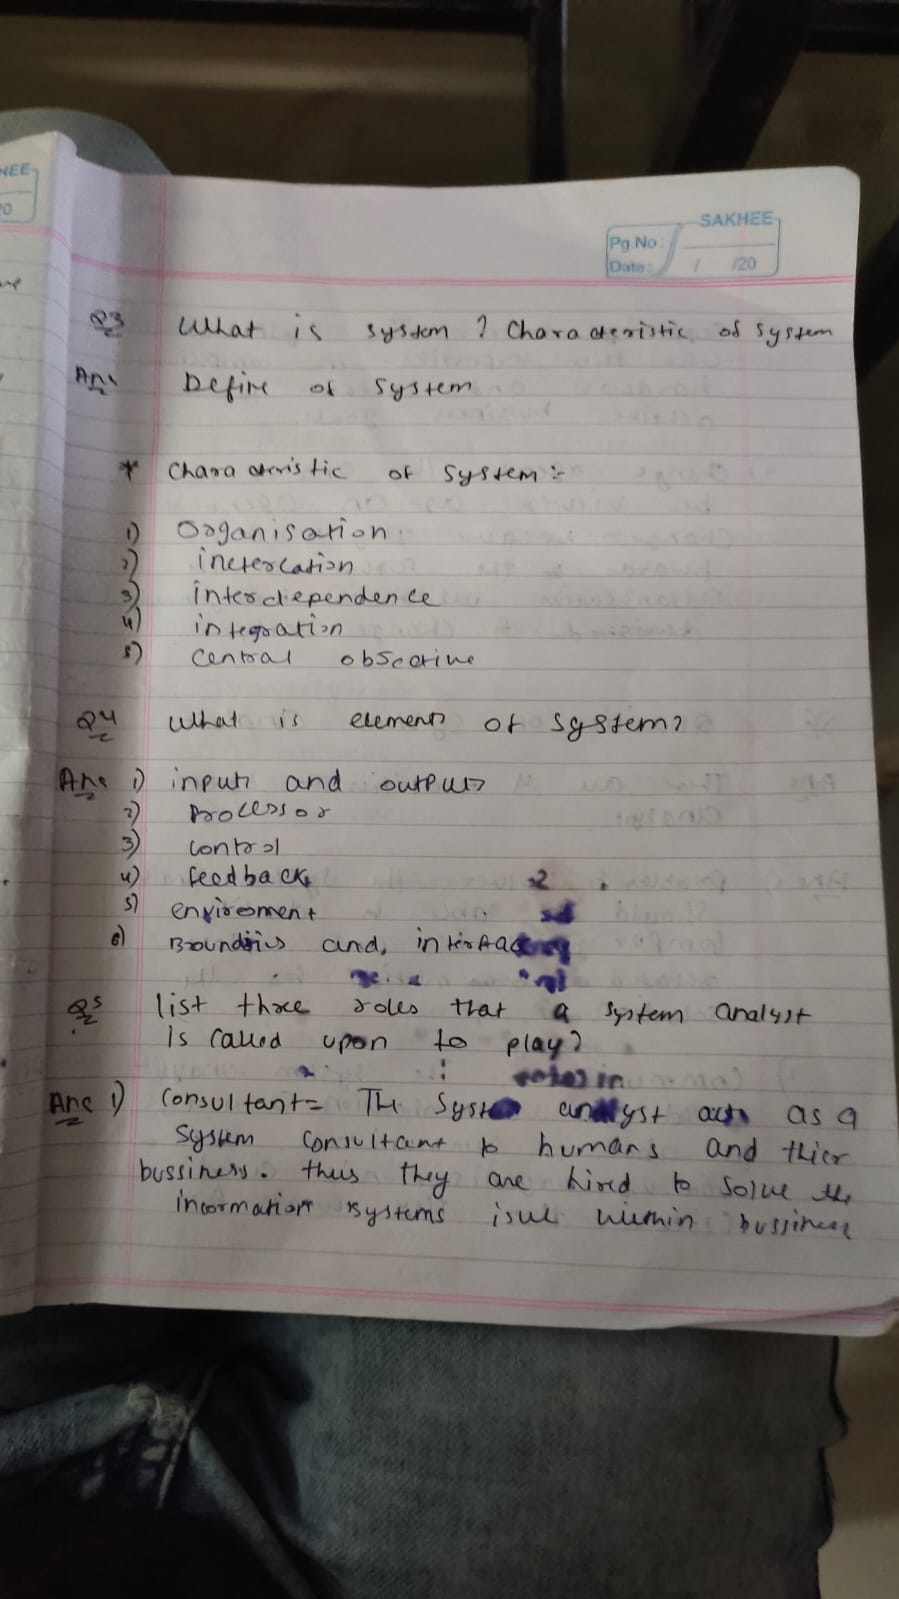 SAKHEE
Pg.No:
Date: / /20
Q3 What is system ? Characteristic of system
Ans Define of system
* Characteristic of system :-
1) Organisation
2) intercation
3) interdependence
4) integration
5) central obsective
Q4 What is elements of system?
Ans 1) inputs and outputs
2) Processor
3) control
4) feedback
5) enviroment
6) Boundries and, interface
Q5 list three roles that a system analyst
is called upon to play?
Ans 1) Consultant = The System analyst acts as a
system consultant to humans and thier
bussiness. thus they are hired to solve the
information systems isue within bussiness